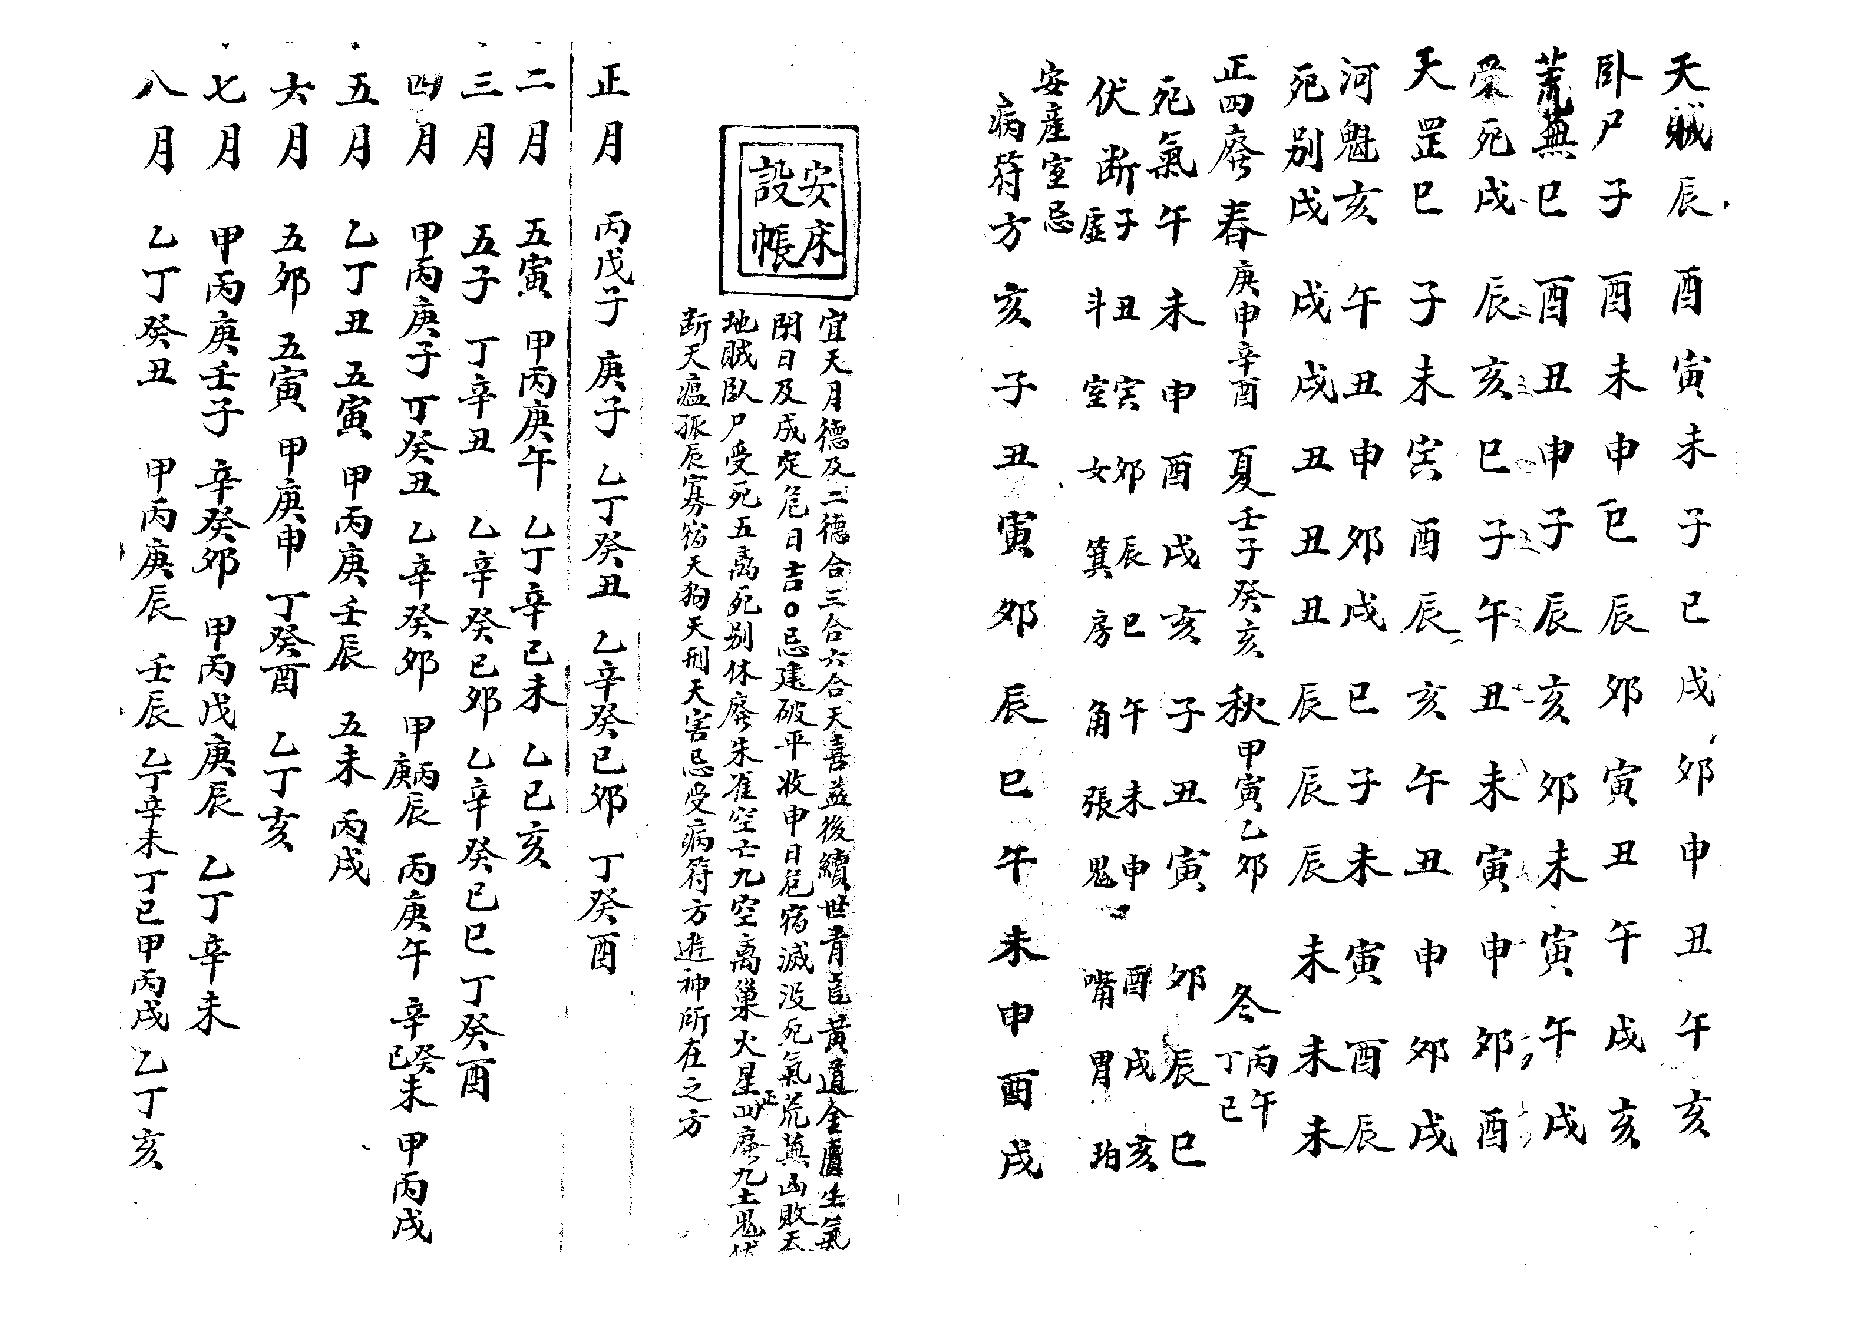 天賊辰酉寅未子巳戌卯申丑午亥
卧尸子酉未申巳辰卯寅丑午戌亥
荒蕪巳酉丑申子辰亥卯未寅午戌
受死戌辰亥巳子午丑未寅申卯酉
天罡巳子未寅酉辰亥午丑申卯戌
河魁亥午丑申卯戌巳子未寅酉辰
死别戌戌戌丑丑丑辰辰辰未未未
正四廃春庚申辛酉夏壬子癸亥秋甲寅乙卯冬丙午丁巳
死氣午未申酉戌亥子丑寅卯辰巳
伏断子虚丑斗寅室卯女辰箕巳房午角未張申鬼酉嘴戌胃亥
安産室忌
病符方亥子丑寅卯辰巳午未申酉戌
安床設帳
宜天月德及二德合三合六合天喜益後續世青皀黄道金匱生氣
閉日及成定危日吉○忌建破平收申日危宿滅没死氣荒蕪凶敗天
地賊臥尸受死五离死别休廃朱雀空亡九空离巢火星正四廃九土鬼伏
断天瘟孤辰寡宿天狗天刑天害忌受病符方遊神所在之方
正月 丙戊子 庚子 乙丁癸丑 乙辛癸巳卯 丁癸酉
二月 五寅 甲丙庚午 乙丁辛己未 乙巳亥
三月 五子 丁辛丑 乙辛癸巳卯 乙辛癸巳巳 丁癸酉
四月 甲丙庚子 丁癸丑 乙辛癸卯 甲丙庚辰 丙庚午 辛癸已未 甲丙戌
五月 乙丁丑 五寅 甲丙庚壬辰 五未 丙戌
六月 五卯 五寅 甲庚申 丁癸酉 乙丁亥
七月 甲丙庚壬子 辛癸卯 甲丙戊庚辰 乙丁辛未
八月 乙丁癸丑 甲丙庚辰 壬辰 乙丁辛未 丁巳 甲丙戌 乙丁亥